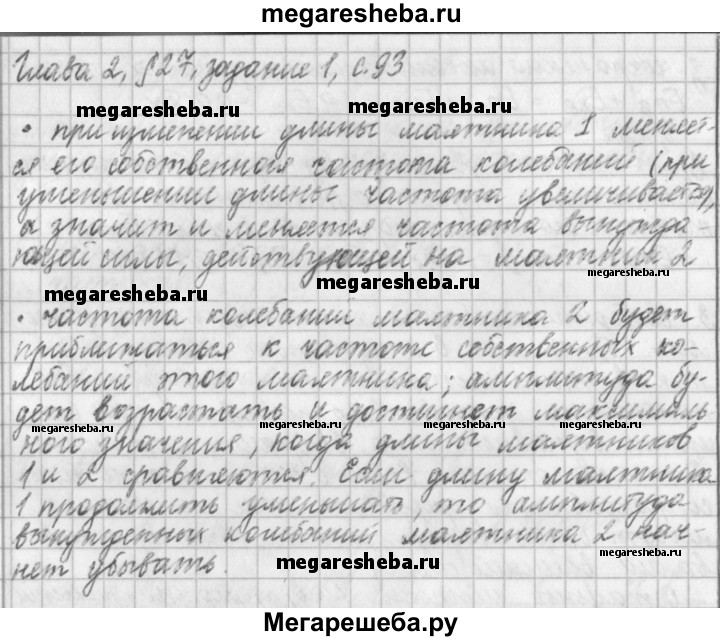 megaresheba.ru
Глава 2, §27, задание 1, с.93
megaresheba.ru megaresheba.ru
• при изменении длины маятника 1 меняет-
ся его собственная частота колебаний (при
уменьшении длины частота увеличивается),
а значит и меняется частота вынужда-
ющей силы, действующей на маятник 2
megaresheba.ru megaresheba.ru megaresheba.ru
• частота колебаний маятника 2 будет
приближаться к частоте собственных ко-
лебаний этого маятника; амплитуда бу-
дет возрастать и достигнет максималь
megaresheba.ru megaresheba.ru megaresheba.ru megaresheba.ru
ного значения, когда длины маятников
1 и 2 сравняются. Если длину маятника
1 продолжить уменьшать, то амплитуда
вынужденных колебаний маятника 2 нач-
megaresheba.ru megaresheba.ru
нет убывать.
Мегарешеба.ру